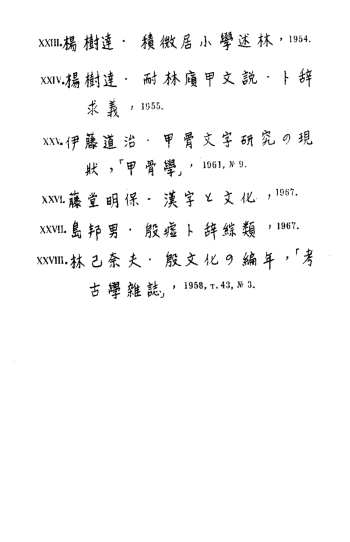 XXIII. 楊樹達・積微居小學述林, 1954.
XXIV. 楊樹達・耐林廎甲文說・卜辞
求義, 1955.
XXV. 伊藤道治・甲骨文字研究の現
狀,「甲骨學」, 1961, № 9.
XXVI. 藤堂明保・漢字と文化, 1967.
XXVII. 島邦男・殷墟卜辞綜類, 1967.
XXVIII. 林巳奈夫・殷文化の編年,「考
古學雜誌」, 1958, т. 43, № 3.